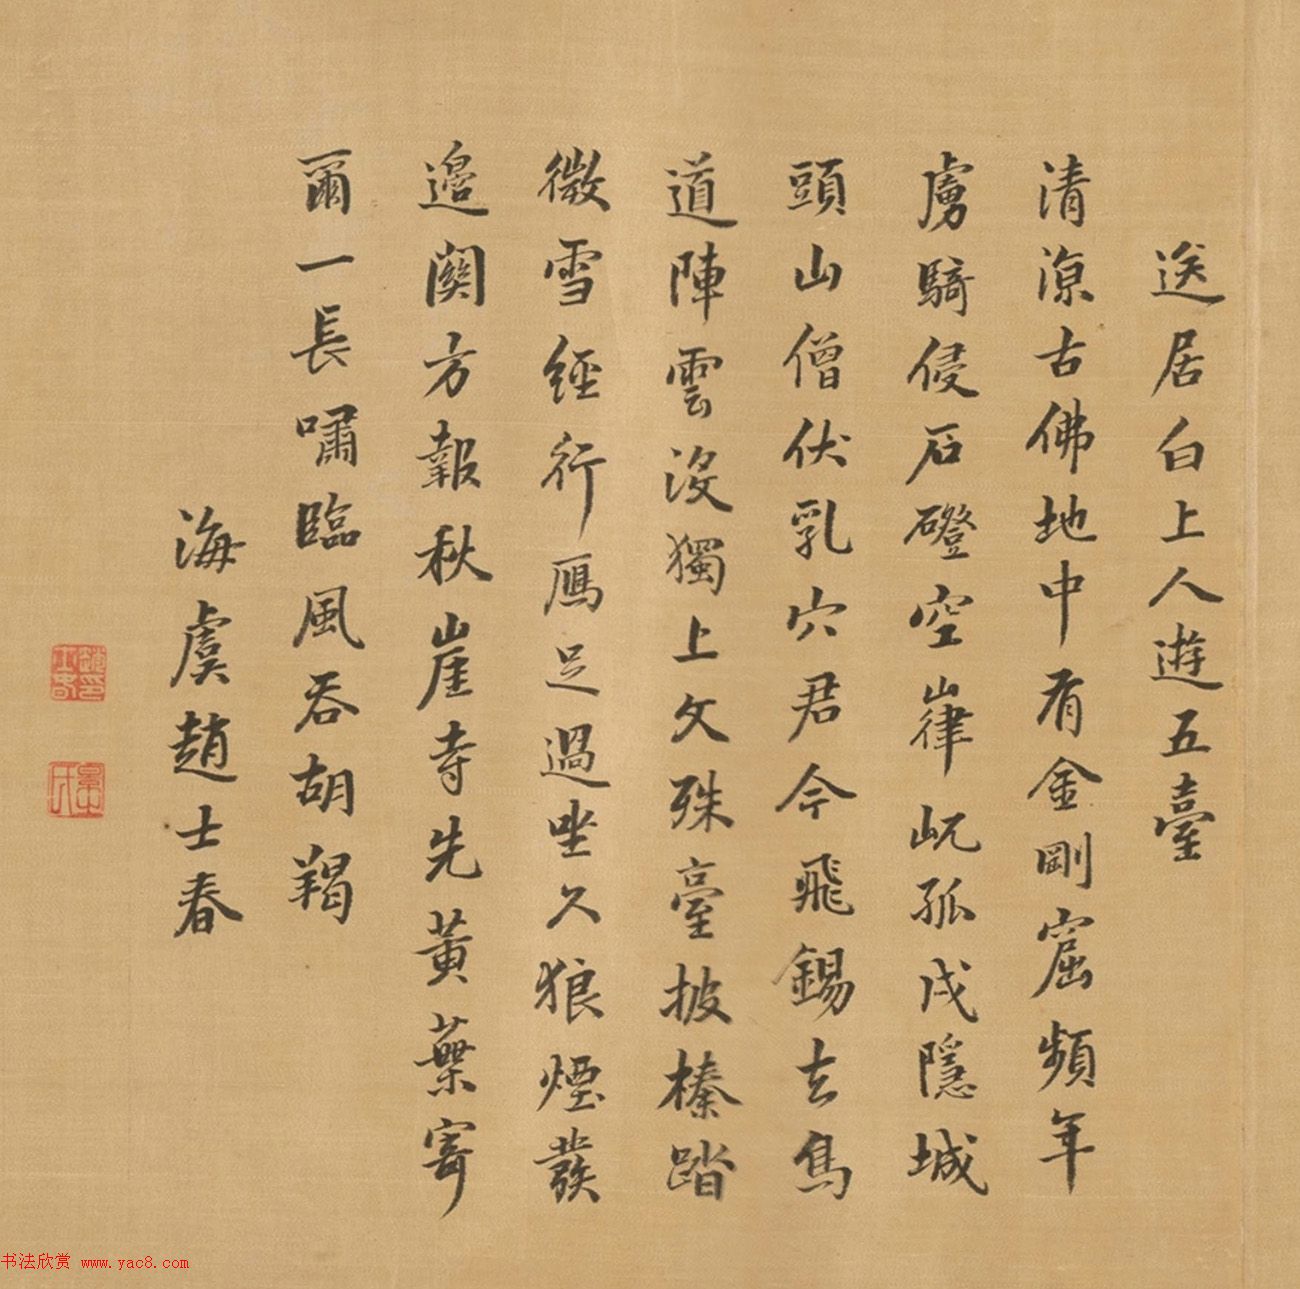 送居白上人遊五臺
清涼古佛地中有金剛窟頻年
虜騎侵石磴空嵂屼孤戍隱城
頭山僧伏乳穴君今飛錫去鳥
道陣雲沒獨上文殊臺披榛踏
微雪經行鴈足過坐久狼煙發
邊關方報秋崖寺先黃葉寄
爾一長嘯臨風吞胡羯
海虞趙士春
书法欣赏 www.yac8.com